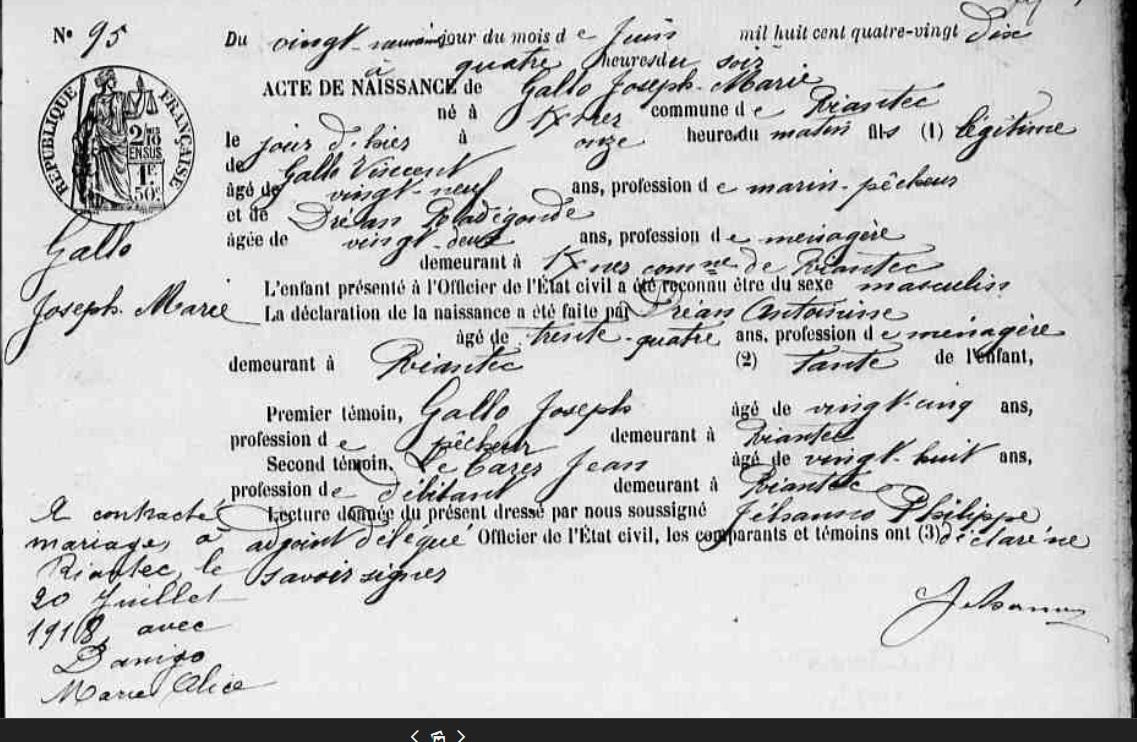 N° 95
Du vingt- jour du mois de Juin mil huit cent quatre-vingt dix
à quatre heures du soir
ACTE DE NAISSANCE de Gallo Joseph-Marie
né à commune de Riantec
le jour d'hier à onze heures du matin fils (1) légitime
de Gallo Vincent
âgé de vingt-neuf ans, profession de marin-pêcheur
et de Dréan Radégonde
âgée de vingt-deux ans, profession de ménagère
demeurant à comne de Riantec
L'enfant présenté à l'Officier de l'État civil a été reconnu être du sexe masculin
La déclaration de la naissance a été faite par Dréan Antoinine
âgé de trente-quatre ans, profession de ménagère
demeurant à Riantec (2) tante de l'enfant,
Premier témoin, Gallo Joseph âgé de vingt-cinq ans,
profession de pêcheur demeurant à Riantec
Second témoin, Jean âgé de vingt-huit ans,
profession de débitant demeurant à Riantec
Lecture donnée du présent dressé par nous soussigné Jéhanno Philippe
adjoint délégué Officier de l'État civil, les comparants et témoins ont (3) déclaré ne
savoir signer
Jéhanno
RÉPUBLIQUE FRANÇAISE
2/10
EN SUS
1F
50c
Gallo
Joseph Marie
A contracté
mariage, à
Riantec, le
20 Juillet
1918, avec
Danigo
Marie Alice